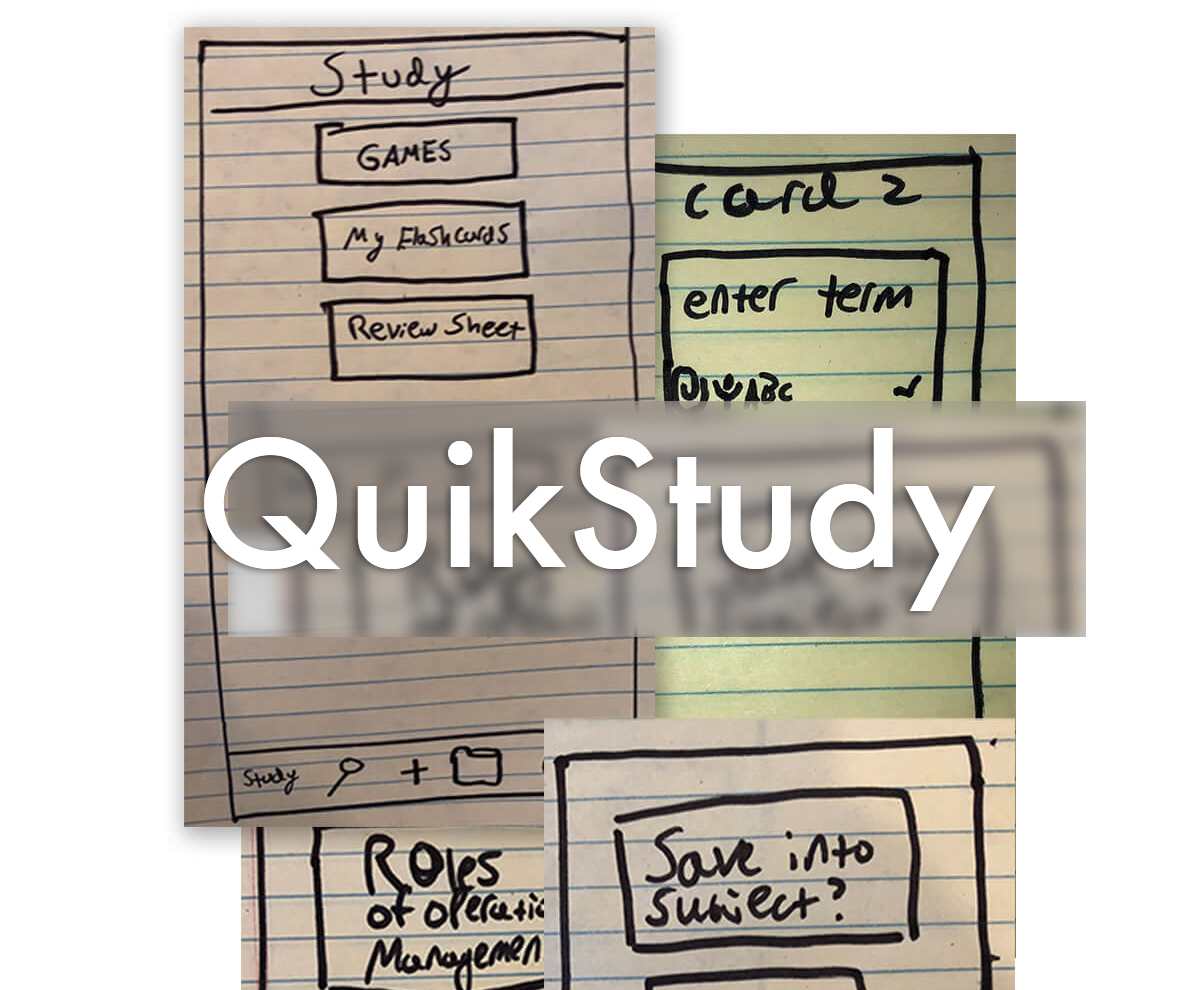 Study
GAMES
My Flashcards
Review Sheet
card 2
enter term
ABC
QuikStudy
Study
+
Roles
of operatio
Managemen
Save into
subject?